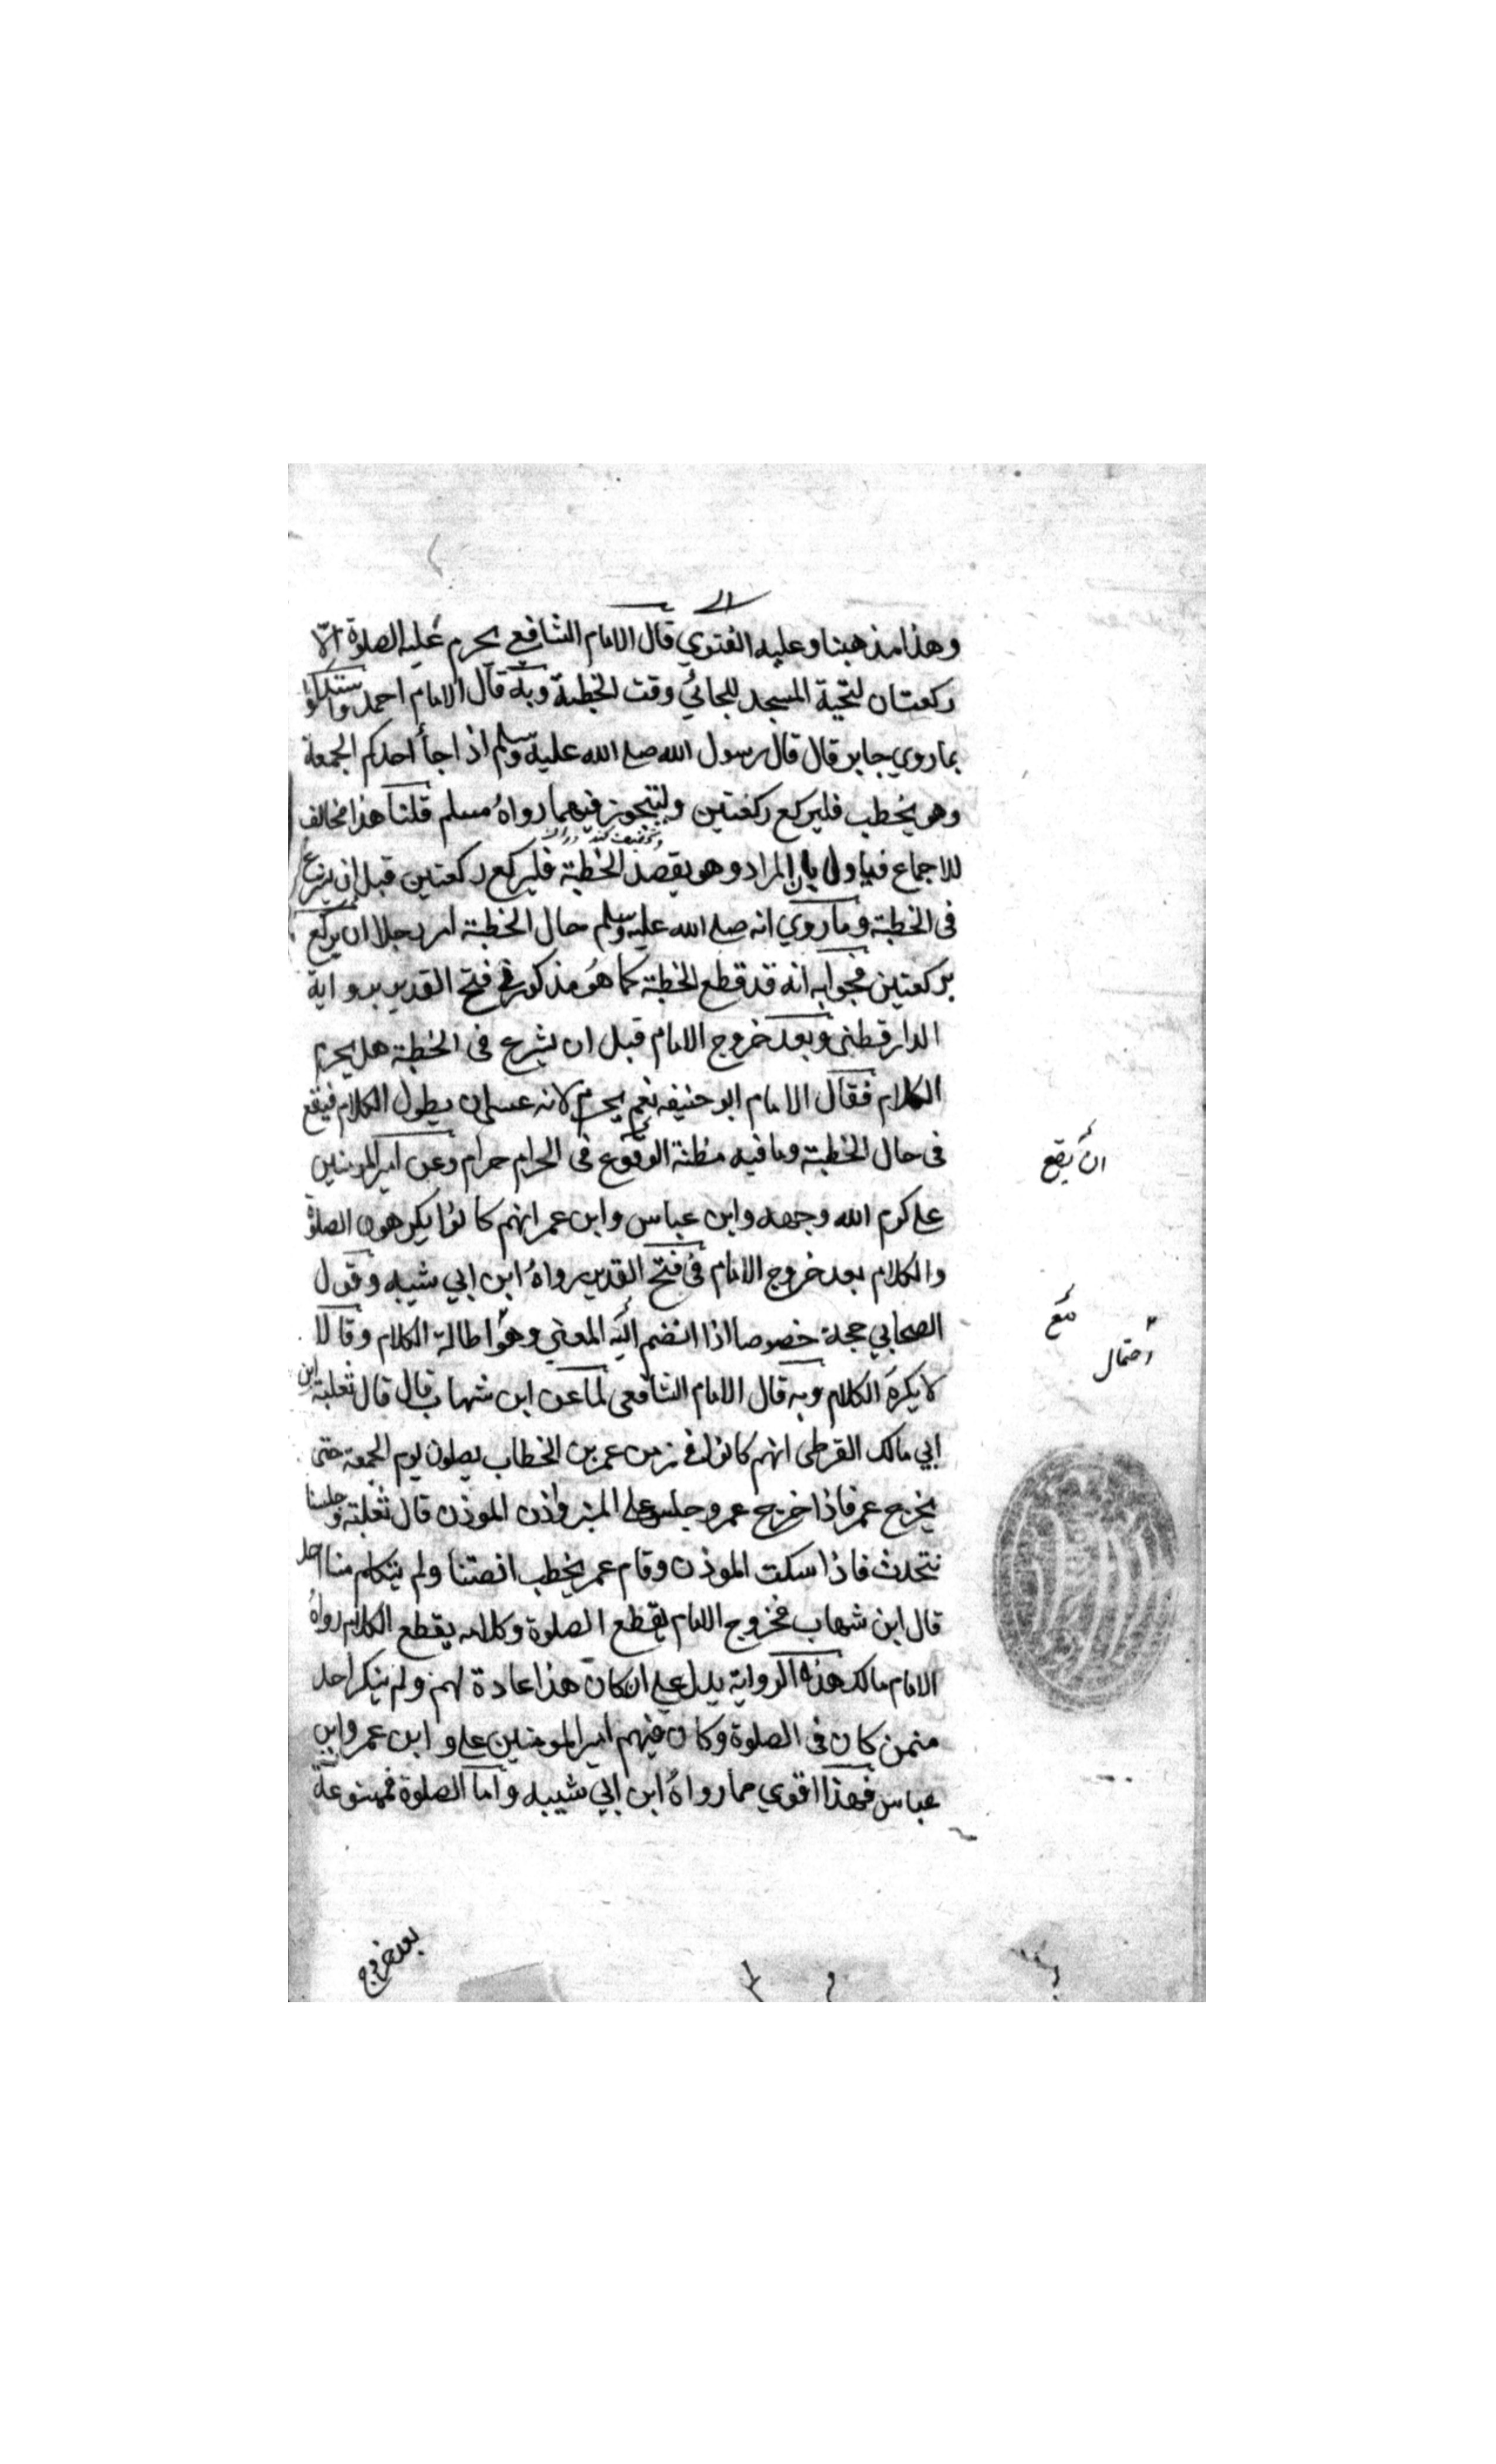 وهذا مذهبنا وعليه الفتوي قال الامام الشافعي يحرم عليه الصلوة الّا
ركعتان لتحية المسجد للجائي وقت الخطبة وبه قال الامام احمد واستدلوا
بماروي جابر قال قال رسول الله صلى الله عليه وسلم اذا جاأ احدكم الجمعة
وهو يخطب فليركع ركعتين وليتجوز فيهما رواه مسلم قلنا هذا مخالف
للاجماع فياول بان المراد وهو يقصد الخطبة فليركع ركعتين قبل ان يشرع
فى الخطبة وماروي انه صلى الله عليه وسلم حال الخطبة امر رجلا ان يركع
بركعتين فجوابه انه قد قطع الخطبة كما هو مذكور في فتح القدير برواية
الدارقطنى وبعد خروج الامام قبل ان يشرع فى الخطبة هل يحرم
الكلام فقال الامام ابو حنيفه نعم يحرم لانه عسى ان يطول الكلام فيقع
فى حال الخطبة ومافيه مظنة الوقوع فى الحرام حرام وعن امير المومنين
على كرم الله وجهه وابن عباس وابن عمر انهم كانوا يكرهون الصلوة
والكلام بعد خروج الامام فى فتح القدير رواه ابن ابي شيبه وقول
الصحابي حجة خصوصا اذا انضم اليه المعني وهو اطالة الكلام وقالا
لا يكره الكلام وبه قال الامام الشافعى لما عن ابن شهاب قال قال ثعلبة ابن
ابي مالك القرظى انهم كانوا في زمن عمر بن الخطاب يصلون يوم الجمعة حتى
يخرج عمر فاذا خرج عمر وجلس على المنبر واذن الموذن قال ثعلبة وجلسنا
نتحدث فاذا سكت الموذن وقام عمر يخطب انصتنا ولم يتكلم منا احد
قال ابن شهاب فخروج الامام يقطع الصلوة وكلامه يقطع الكلام رواه
الامام مالك هذه الرواية يدل على ان كان هذا عادة لهم ولم ينكر احد
ممن كان فى الصلوة وكان فيهم امير المومنين على وابن عمر وابن
عباس فهذا اقوي مما رواه ابن ابي شيبه واما الصلوة فممنوعة
ان يقع
مع
احتمال
بعد خروج